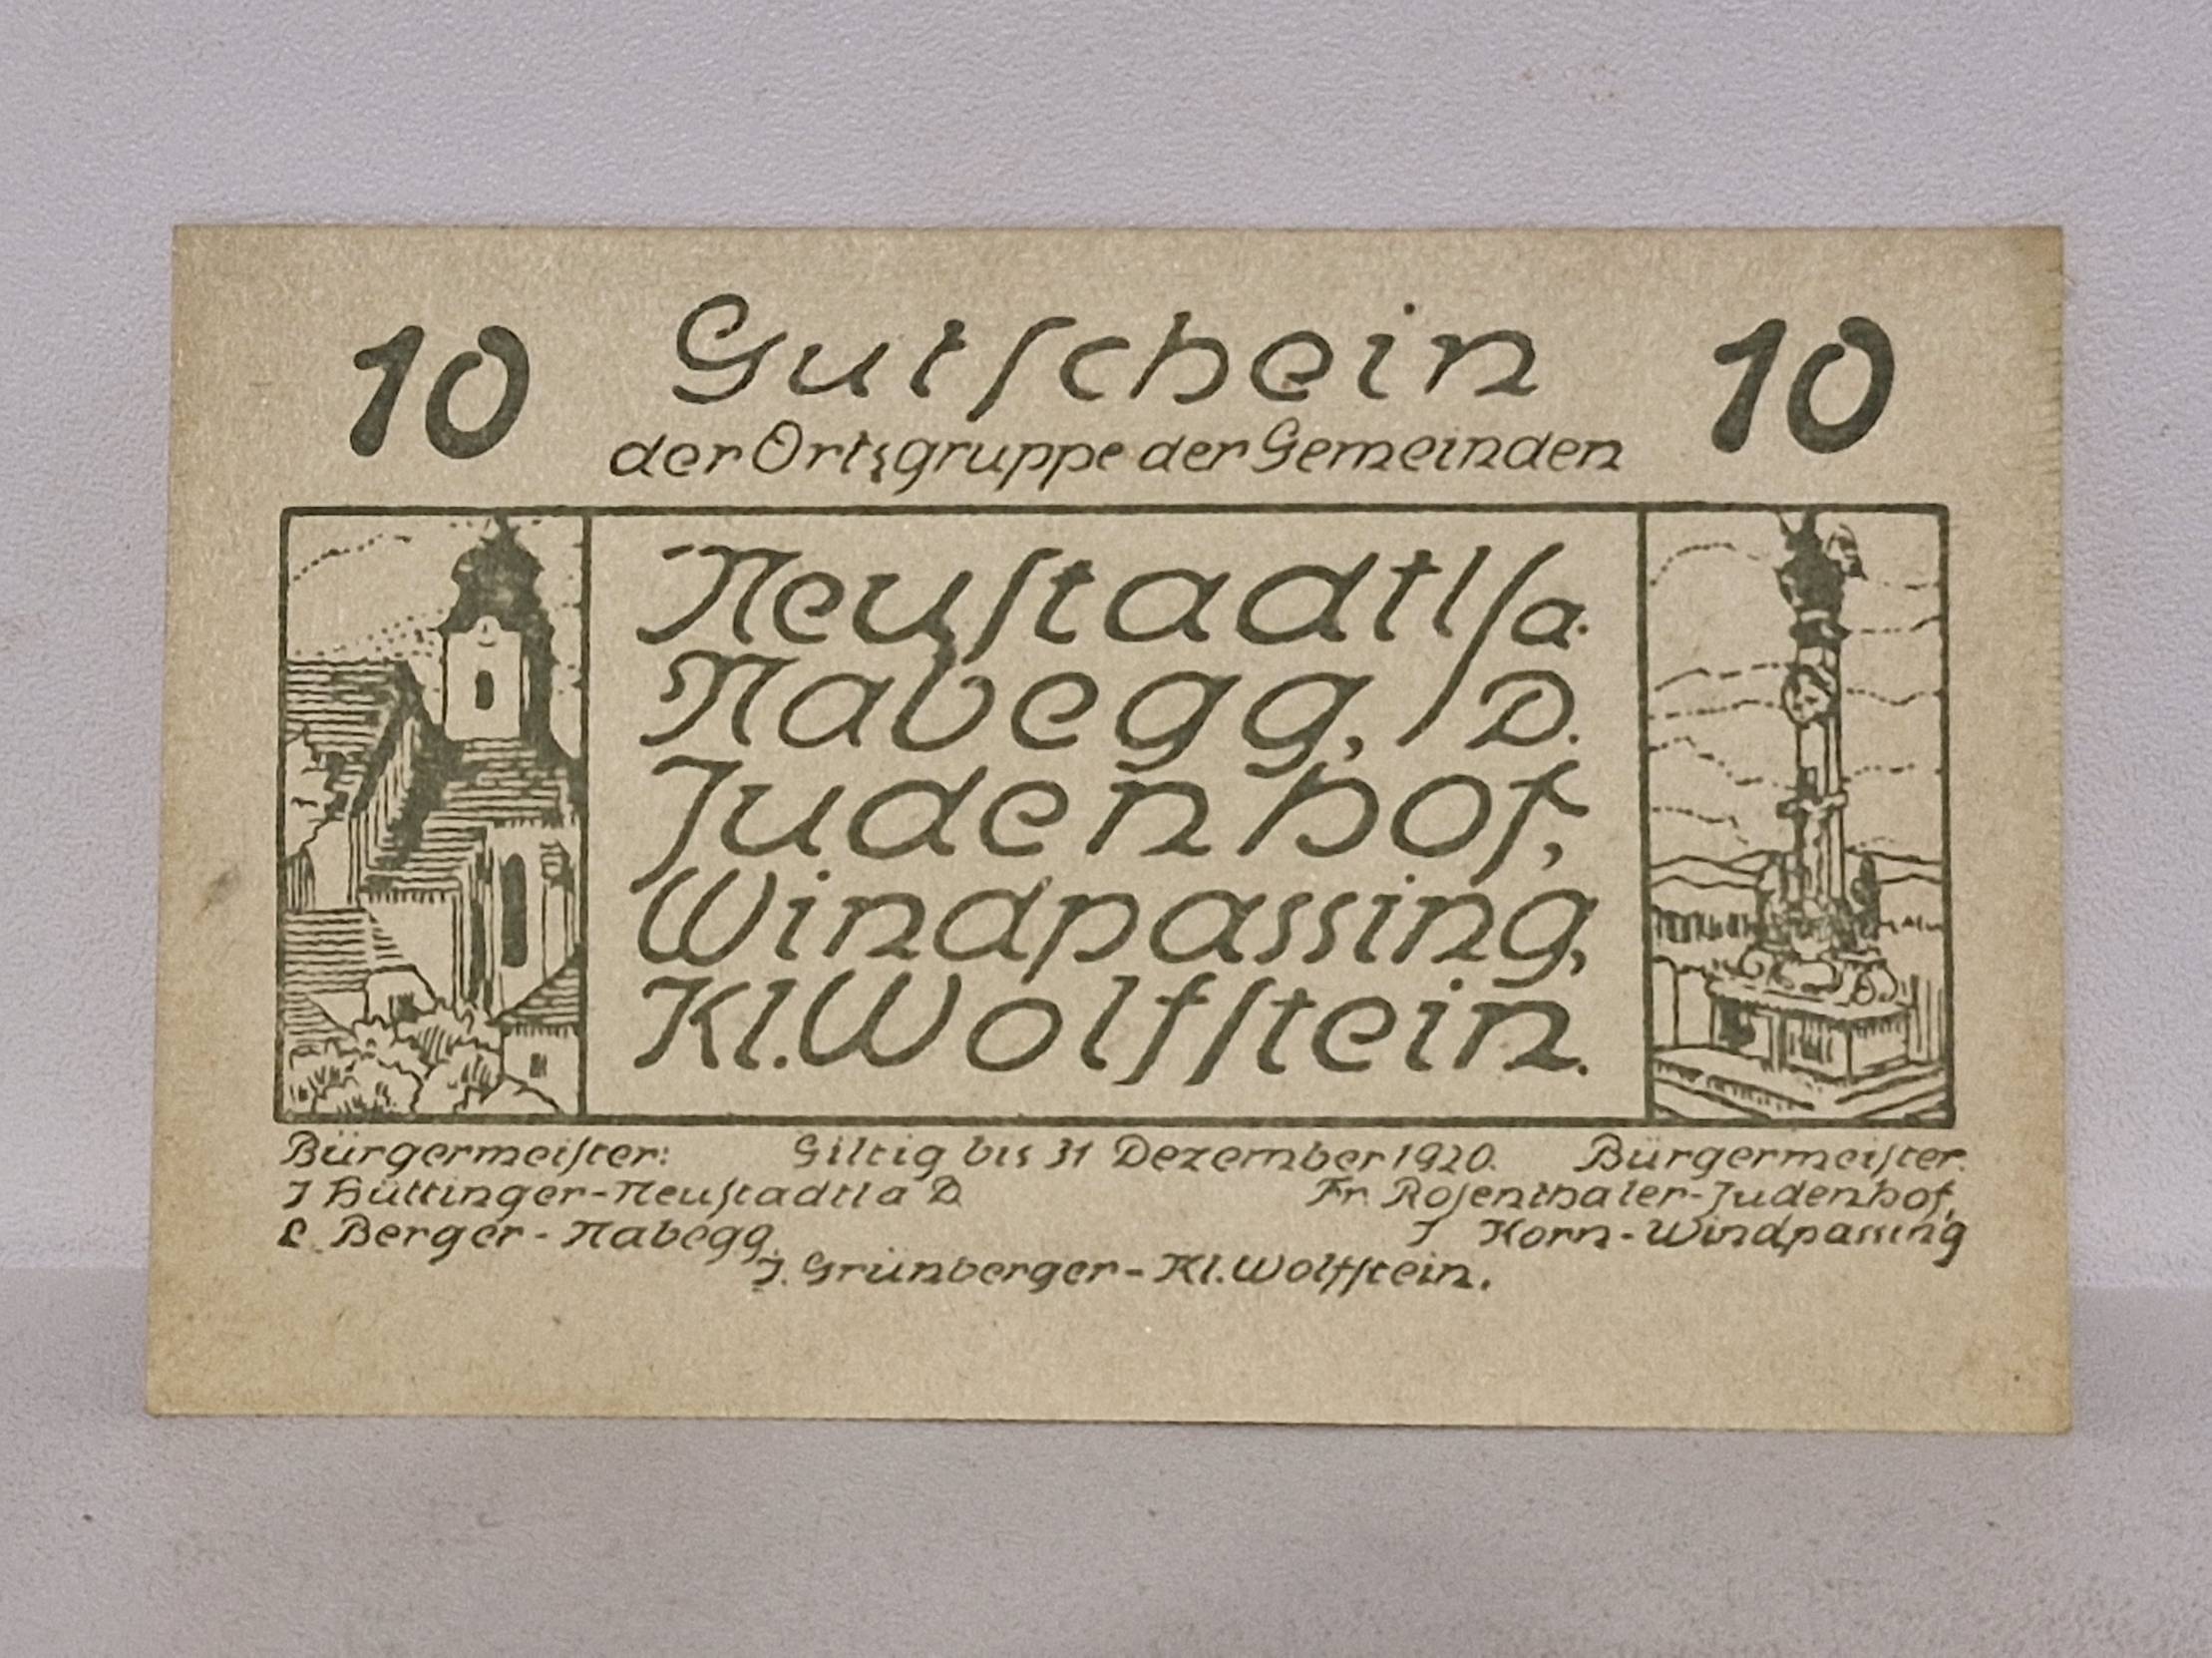 10 Gutſchein 10
der Ortsgruppe der Gemeinden
Neuſtadtl/a.
Nabegg, / D.
Judenhof,
Windpassing,
Kl. Wolfſtein.
Bürgermeiſter: Giltig bis 31 Dezember 1920. Bürgermeiſter.
J Hüttinger-Neuſtadtl a D. Fr. Roſenthaler-Judenhof,
L. Berger - Nabegg. J Korn-Windpassing
J. Grünberger - Kl. Wolfſtein.